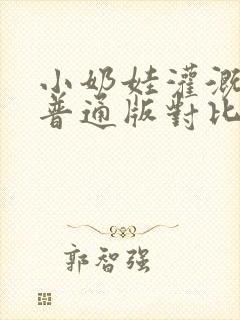 小奶娃灌溉
普通版對比
郭智强